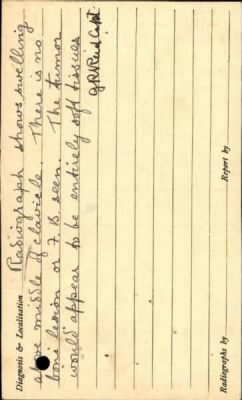 Diagnosis & Localization Radiograph shows swelling
above middle of clavicle. There is no
bone lesion or F.B. seen. The tumor
would appear to be entirely soft tissues
Capt
Radiographs by
Report by